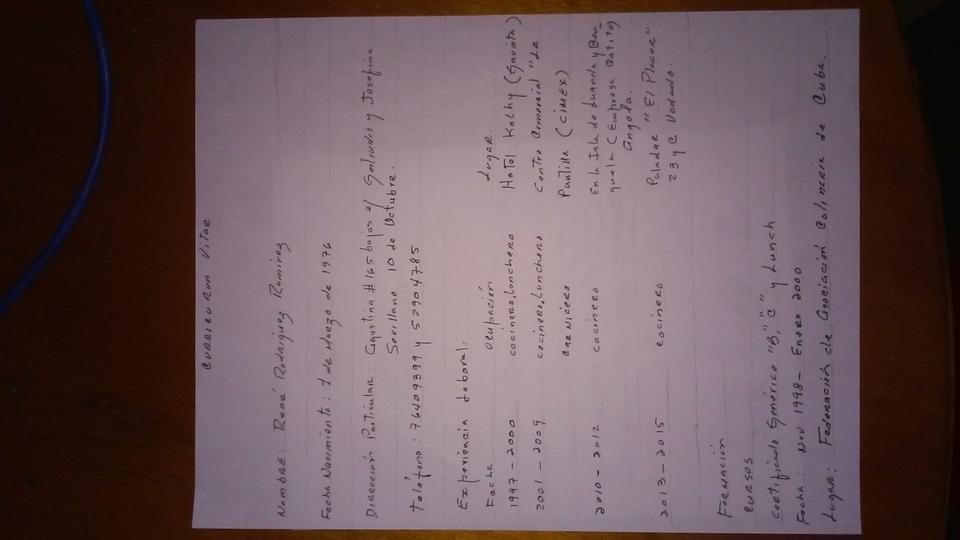 CURRICULUN Vitae
Nombre: René Rodríguez Ramírez
Fecha Nacimiento: 1 de Marzo de 1976
Dirección Particular: Agustina #165 bajos e/ Goticudes y Josefina
Sevillano 10 de Octubre.
Teléfono: 76409399 y 52904785
Experiencia Laboral:
Fecha Ocupación Lugar.
1997-2000 cocinero, Lonchero Hotel Kolhy (Gaviota)
2001-2009 cocinero, Lunchero Centro Comercial "La
carnicero Puntilla (CIMEX)
2010-2012 cocinero En la Isla de Luanda y Ben
guela (Empresa Gatito)
Angoda.
2013-2015 cocinero Paladar "El Placer"
23 y C Vedado.
Formación
Cursos
Certificado Genérico "B," C" y Lunch
Fecha: Nov 1998 - Enero 2000
Lugar: Federación de Asociación Culinaria de Cuba.